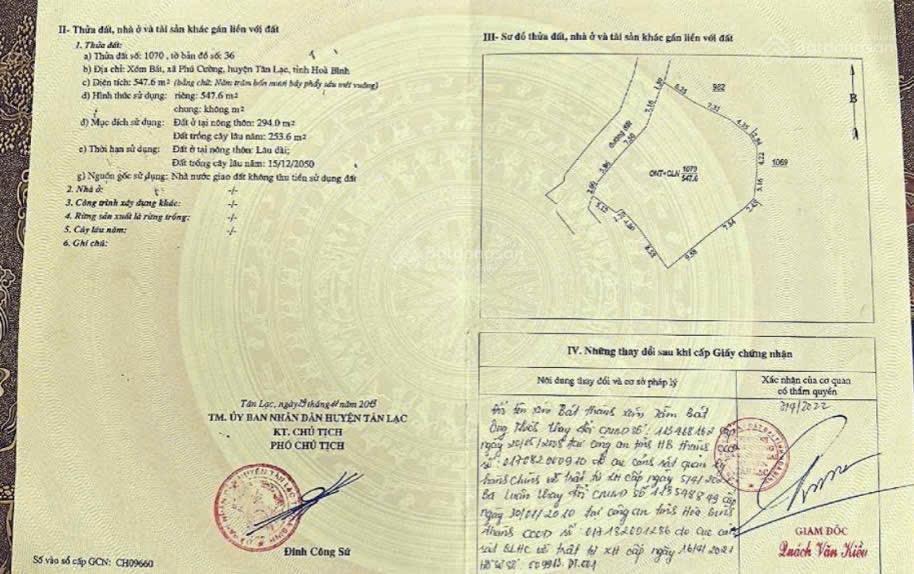 II- Thửa đất, nhà ở và tài sản khác gắn liền với đất
1. Thửa đất:
a) Thửa đất số: 1070, tờ bản đồ số: 36
b) Địa chỉ: Xóm Bát, xã Phú Cường, huyện Tân Lạc, tỉnh Hoà Bình
c) Diện tích: 547.6 m² (bằng chữ: Năm trăm bốn mươi bảy phẩy sáu mét vuông)
d) Hình thức sử dụng: riêng: 547.6 m²
chung: không m²
đ) Mục đích sử dụng: Đất ở tại nông thôn: 294.0 m²
Đất trồng cây lâu năm: 253.6 m²
e) Thời hạn sử dụng: Đất ở tại nông thôn: Lâu dài;
Đất trồng cây lâu năm: 15/12/2050
g) Nguồn gốc sử dụng: Nhà nước giao đất không thu tiền sử dụng đất
2. Nhà ở: -/-
3. Công trình xây dựng khác: -/-
4. Rừng sản xuất là rừng trồng: -/-
5. Cây lâu năm: -/-
6. Ghi chú:
Tân Lạc, ngày tháng năm
TM. ỦY BAN NHÂN DÂN HUYỆN TÂN LẠC
KT. CHỦ TỊCH
PHÓ CHỦ TỊCH
Đinh Công Sứ
Số vào sổ cấp GCN: CH09660
III- Sơ đồ thửa đất, nhà ở và tài sản khác gắn liền với đất
902
B
6.35
7.35
4.35
2.94
4.22
1069
5.16
2.45
7.54
9.58
6.58
4.80
5.15
2.60
5.86
7.50
5.16
1.50
đường đất
ONT+CLN 1070
547.6
IV. Những thay đổi sau khi cấp Giấy chứng nhận
Nội dung thay đổi và cơ sở pháp lý
Xác nhận của cơ quan
có thẩm quyền
Đổi tên xóm Bát thành xóm
Ông thay đổi CMND số: 113468162
ngày 20/05/2008 tại công an tỉnh HB thành
số: 017082000910 do cục cảnh sát quản
hành chính về trật tự XH cấp ngày
Bà Luân thay đổi CMND số cấp
ngày 30/01/2010 tại công an tỉnh Hòa Bình
thành CCCD số 017182001286 do cục
về trật tự XH cấp ngày 16/4/2021
GIÁM ĐỐC
Quách Văn Kiều